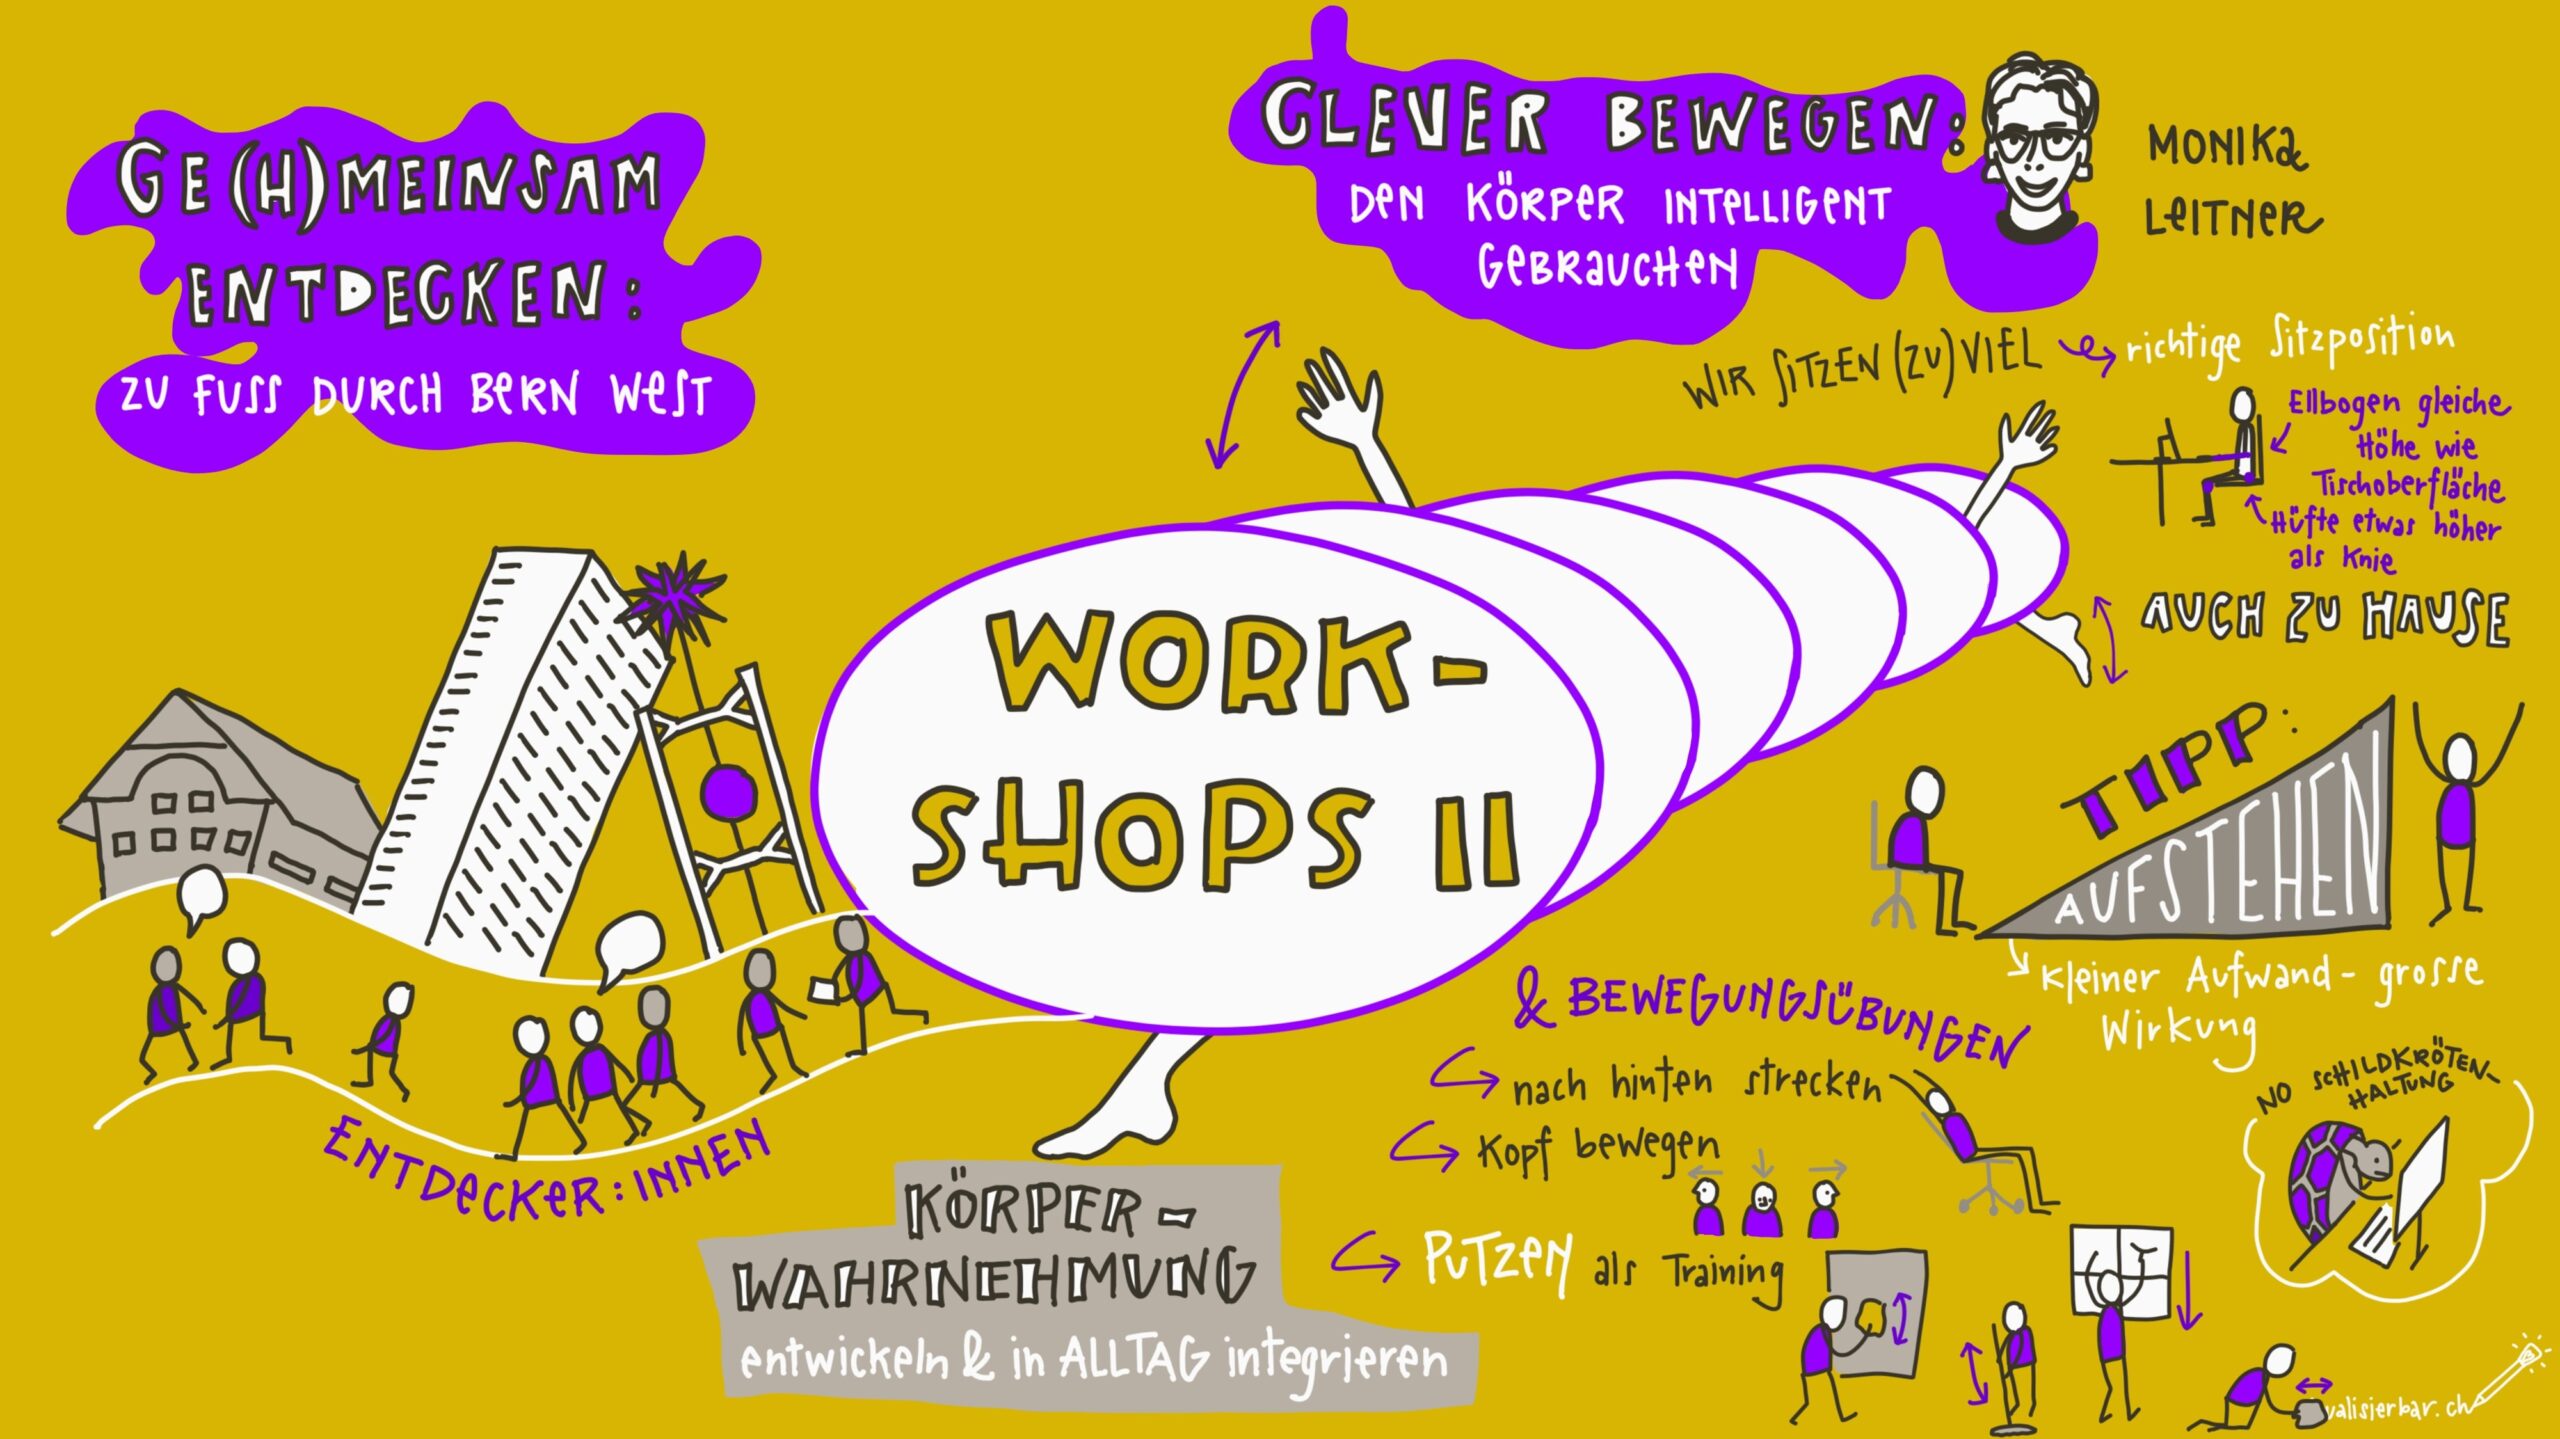 GE(H)MEINSAM
ENTDECKEN:
ZU FUSS DURCH BERN WEST
ENTDECKER:INNEN
WORK-
SHOPS II
KÖRPER-
WAHRNEHMUNG
entwickeln & in ALLTAG integrieren
CLEVER BEWEGEN:
DEN KÖRPER INTELLIGENT
GEBRAUCHEN
MONIKA
LEITNER
WIR SITZEN (ZU) VIEL
richtige Sitzposition
Ellbogen gleiche
Höhe wie
Tischoberfläche
Hüfte etwas höher
als Knie
AUCH ZU HAUSE
TIPP:
AUFSTEHEN
kleiner Aufwand - grosse
Wirkung
& BEWEGUNGSÜBUNGEN
nach hinten strecken
Kopf bewegen
PUTZEN als Training
NO SCHILDKRÖTEN-
HALTUNG
ualisierbar.ch